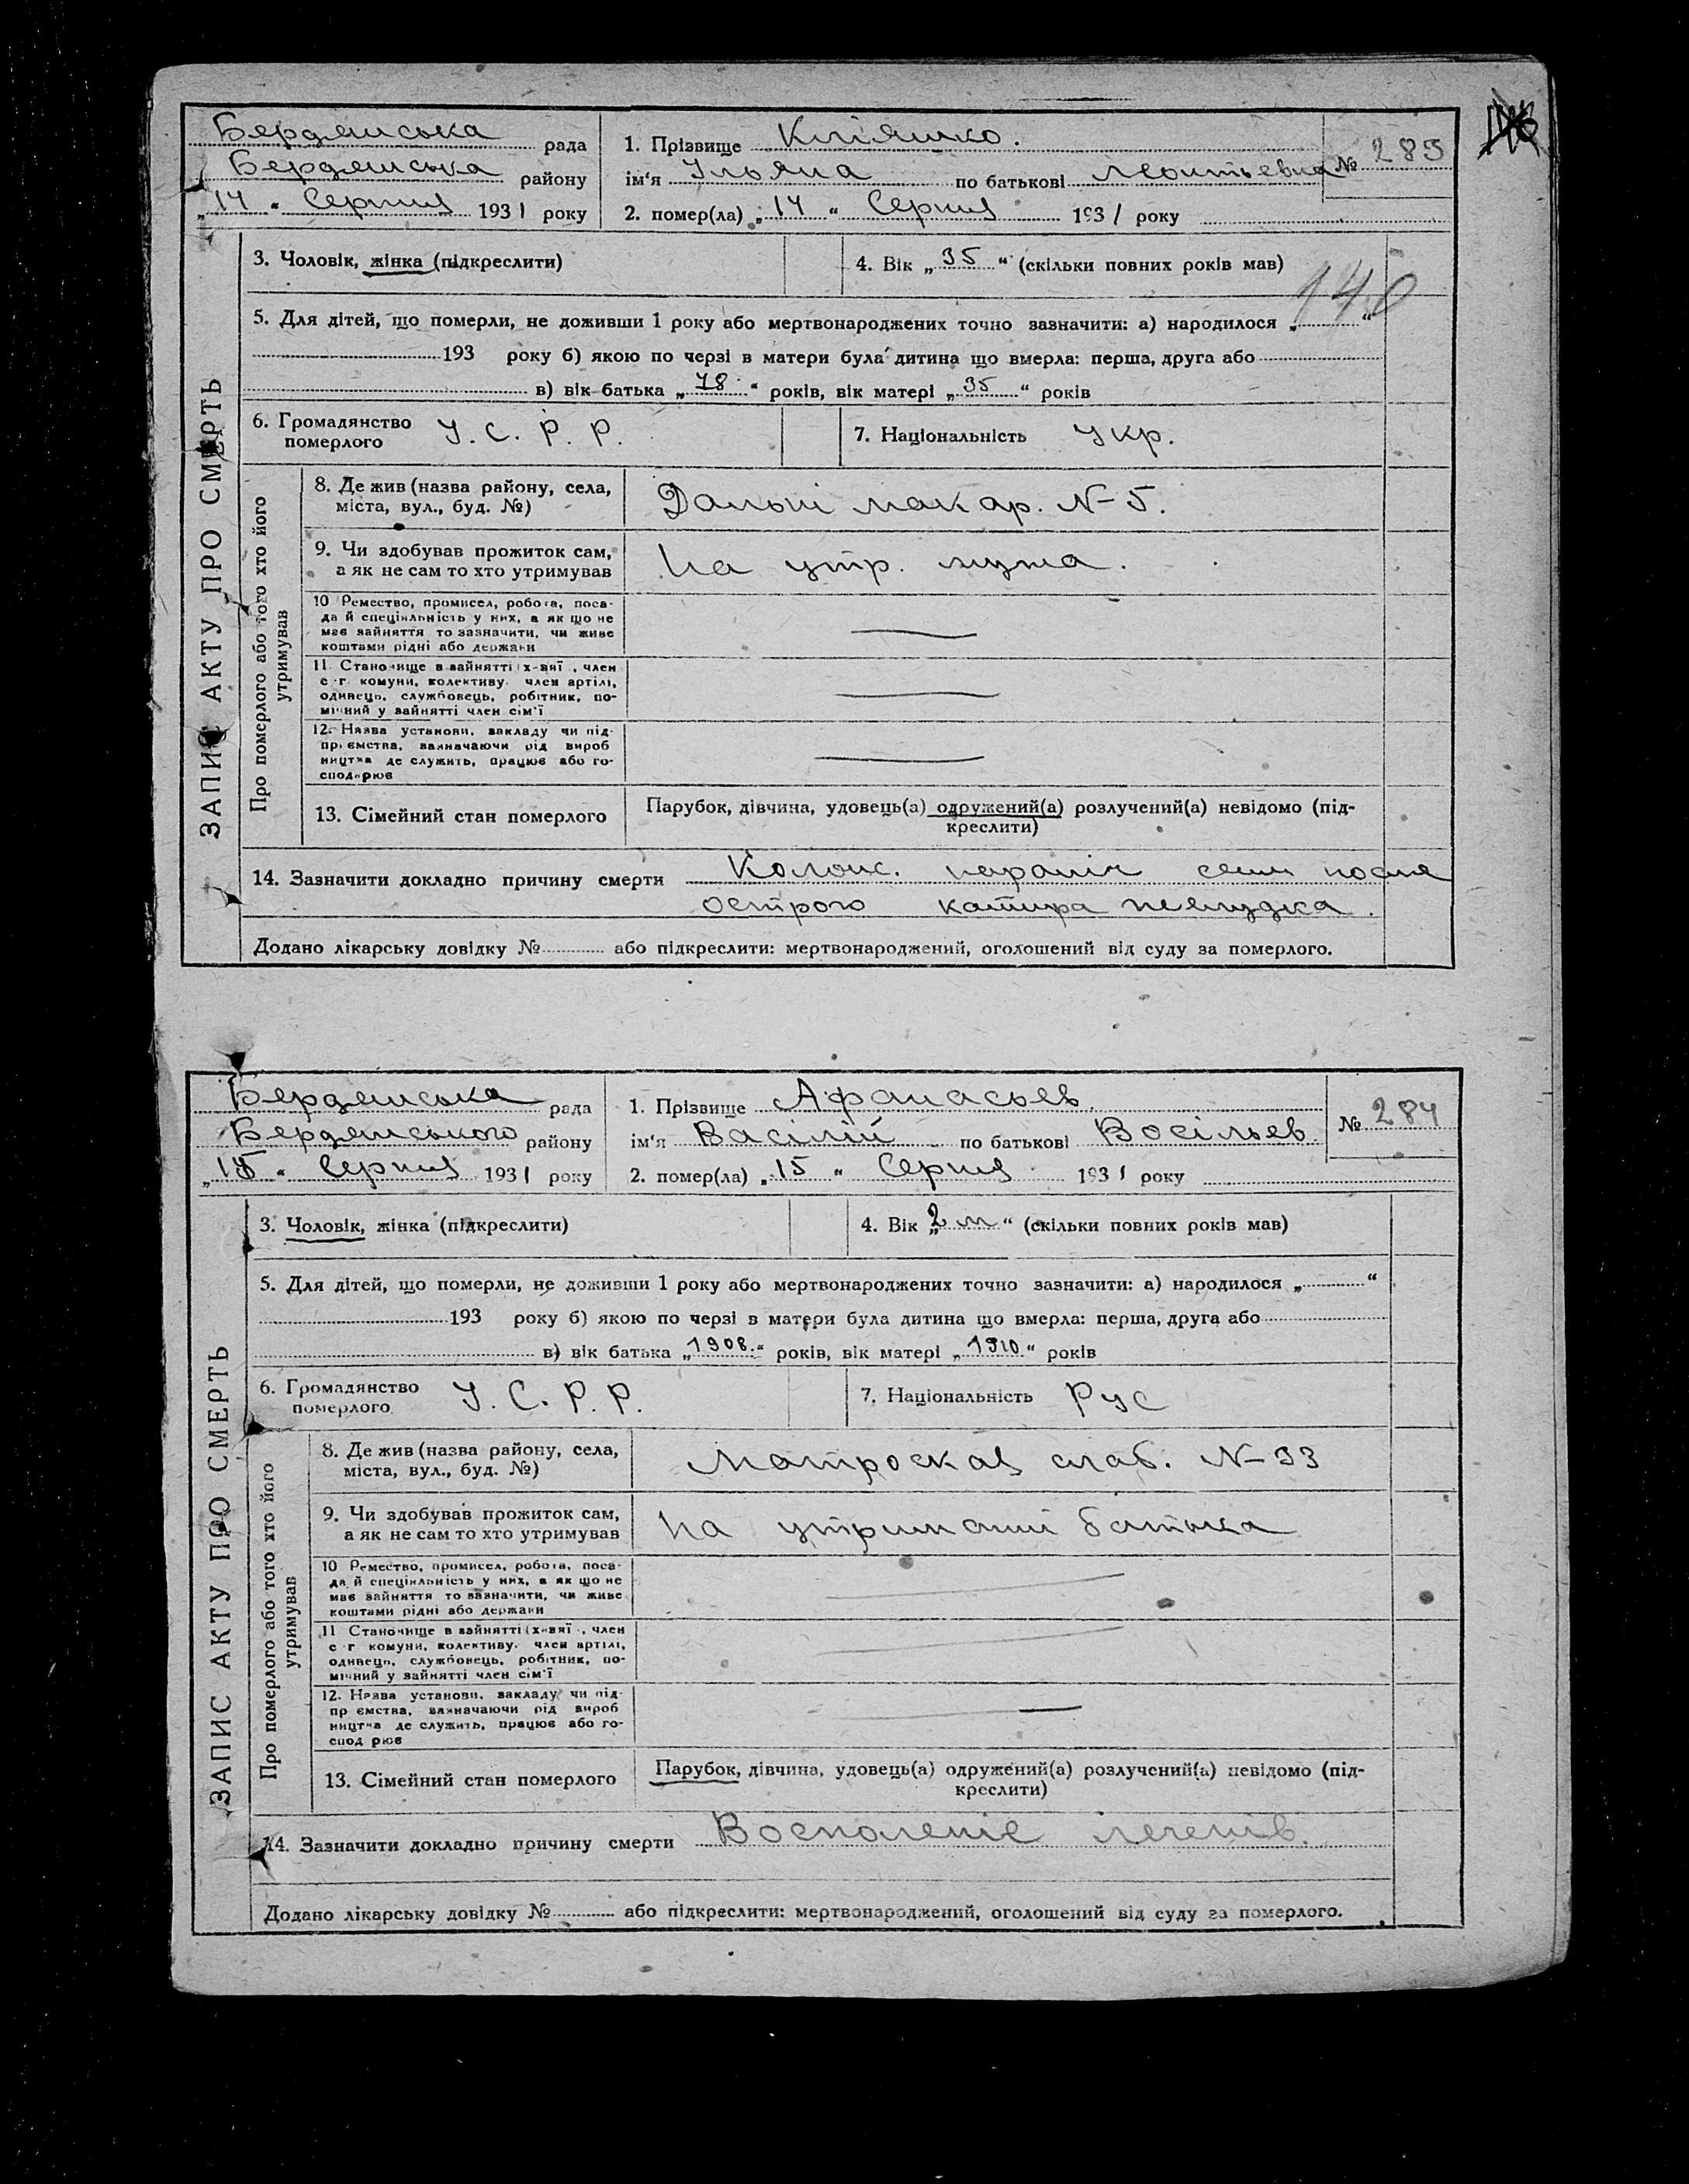 Бердянська рада
Бердянська району
„14“ Серпня 1931 року
1. Прізвище Кпіяшко.
ім'я Ульяна по батькові Леонтьевна
№ 283
2. помер(ла) „14“ Серпня 1931 року
3. Чоловік, жінка (підкреслити)
4. Вік „35“ (скільки повних років мав)
140
5. Для дітей, що померли, не доживши 1 року або мертвонароджених точно зазначити: а) народилося „ “
193 року б) якою по черзі в матери була дитина що вмерла: перша, друга або
в) вік батька „78“ років, вік матері „35“ років
6. Громадянство
померлого
У. С. Р. Р.
7. Національність Укр.
ЗАПИС АКТУ ПРО СМЕРТЬ
Про померлого або того хто його
утримував
8. Де жив (назва району, села,
міста, вул., буд. №)
Дальні макар. N-5.
9. Чи здобував прожиток сам,
а як не сам то хто утримував
На утр. мужа.
10 Ремество, промисел, робота, поса-
да й спеціяльність у них, а як що не
має зайняття то зазначити, чи живе
коштами рідні або держави
11. Становище в зайнятті (х-вяї , член
с-г. комуни, колективу. член артілі,
одинець, службовець, робітник, по-
мічний у зайнятті член сім'ї
12. Назва установи, закладу чи під-
приємства, зазначаючи рід вироб
ництва де служить, працює або го-
сподарює
13. Сімейний стан померлого
Парубок, дівчина, удовець(а) одружений(а) розлучений(а) невідомо (під-
креслити)
14. Зазначити докладно причину смерти параліч после
острого желудка.
Додано лікарську довідку № або підкреслити: мертвонароджений, оголошений від суду за померлого.
Бердянська рада
Бердянського району
„15“ Серпня 1931 року
1. Прізвище Афанасьев.
ім'я Васілій по батькові Восільев.
№ 284
2. помер(ла) „15“ Серпня 1931 року
3. Чоловік, жінка (підкреслити)
4. Вік „2 м“ (скільки повних років мав)
5. Для дітей, що померли, не доживши 1 року або мертвонароджених точно зазначити: а) народилося „ “
193 року б) якою по черзі в матери була дитина що вмерла: перша, друга або
в) вік батька „1908.“ років, вік матері „1910“ років
6. Громадянство
померлого
У. С. Р. Р.
7. Національність Рус
ЗАПИС АКТУ ПРО СМЕРТЬ
Про померлого або того хто його
утримував
8. Де жив (назва району, села,
міста, вул., буд. №)
Матроская слаб. N-33
9. Чи здобував прожиток сам,
а як не сам то хто утримував
На утриманні батька
10 Ремество, промисел, робота, поса-
да й спеціяльність у них, а як що не
має зайняття то зазначити, чи живе
коштами рідні або держави
11 Становище в зайнятті (х-вяї , член
с-г комуни, колективу. член артілі,
одинець, службовець, робітник, по-
мічний у зайнятті член сім'ї
12. Назва установи, закладу чи під-
приємства, зазначаючи рід вироб
ництва де служить, працює або го-
сподарює
13. Сімейний стан померлого
Парубок, дівчина, удовець(а) одружений(а) розлучений(а) невідомо (під-
креслити)
14. Зазначити докладно причину смерти Воспаленіе легепів.
Додано лікарську довідку № або підкреслити: мертвонароджений, оголошений від суду за померлого.